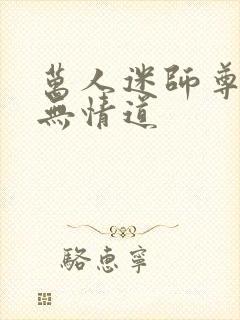 萬人迷師尊
無情道
駱惠寧